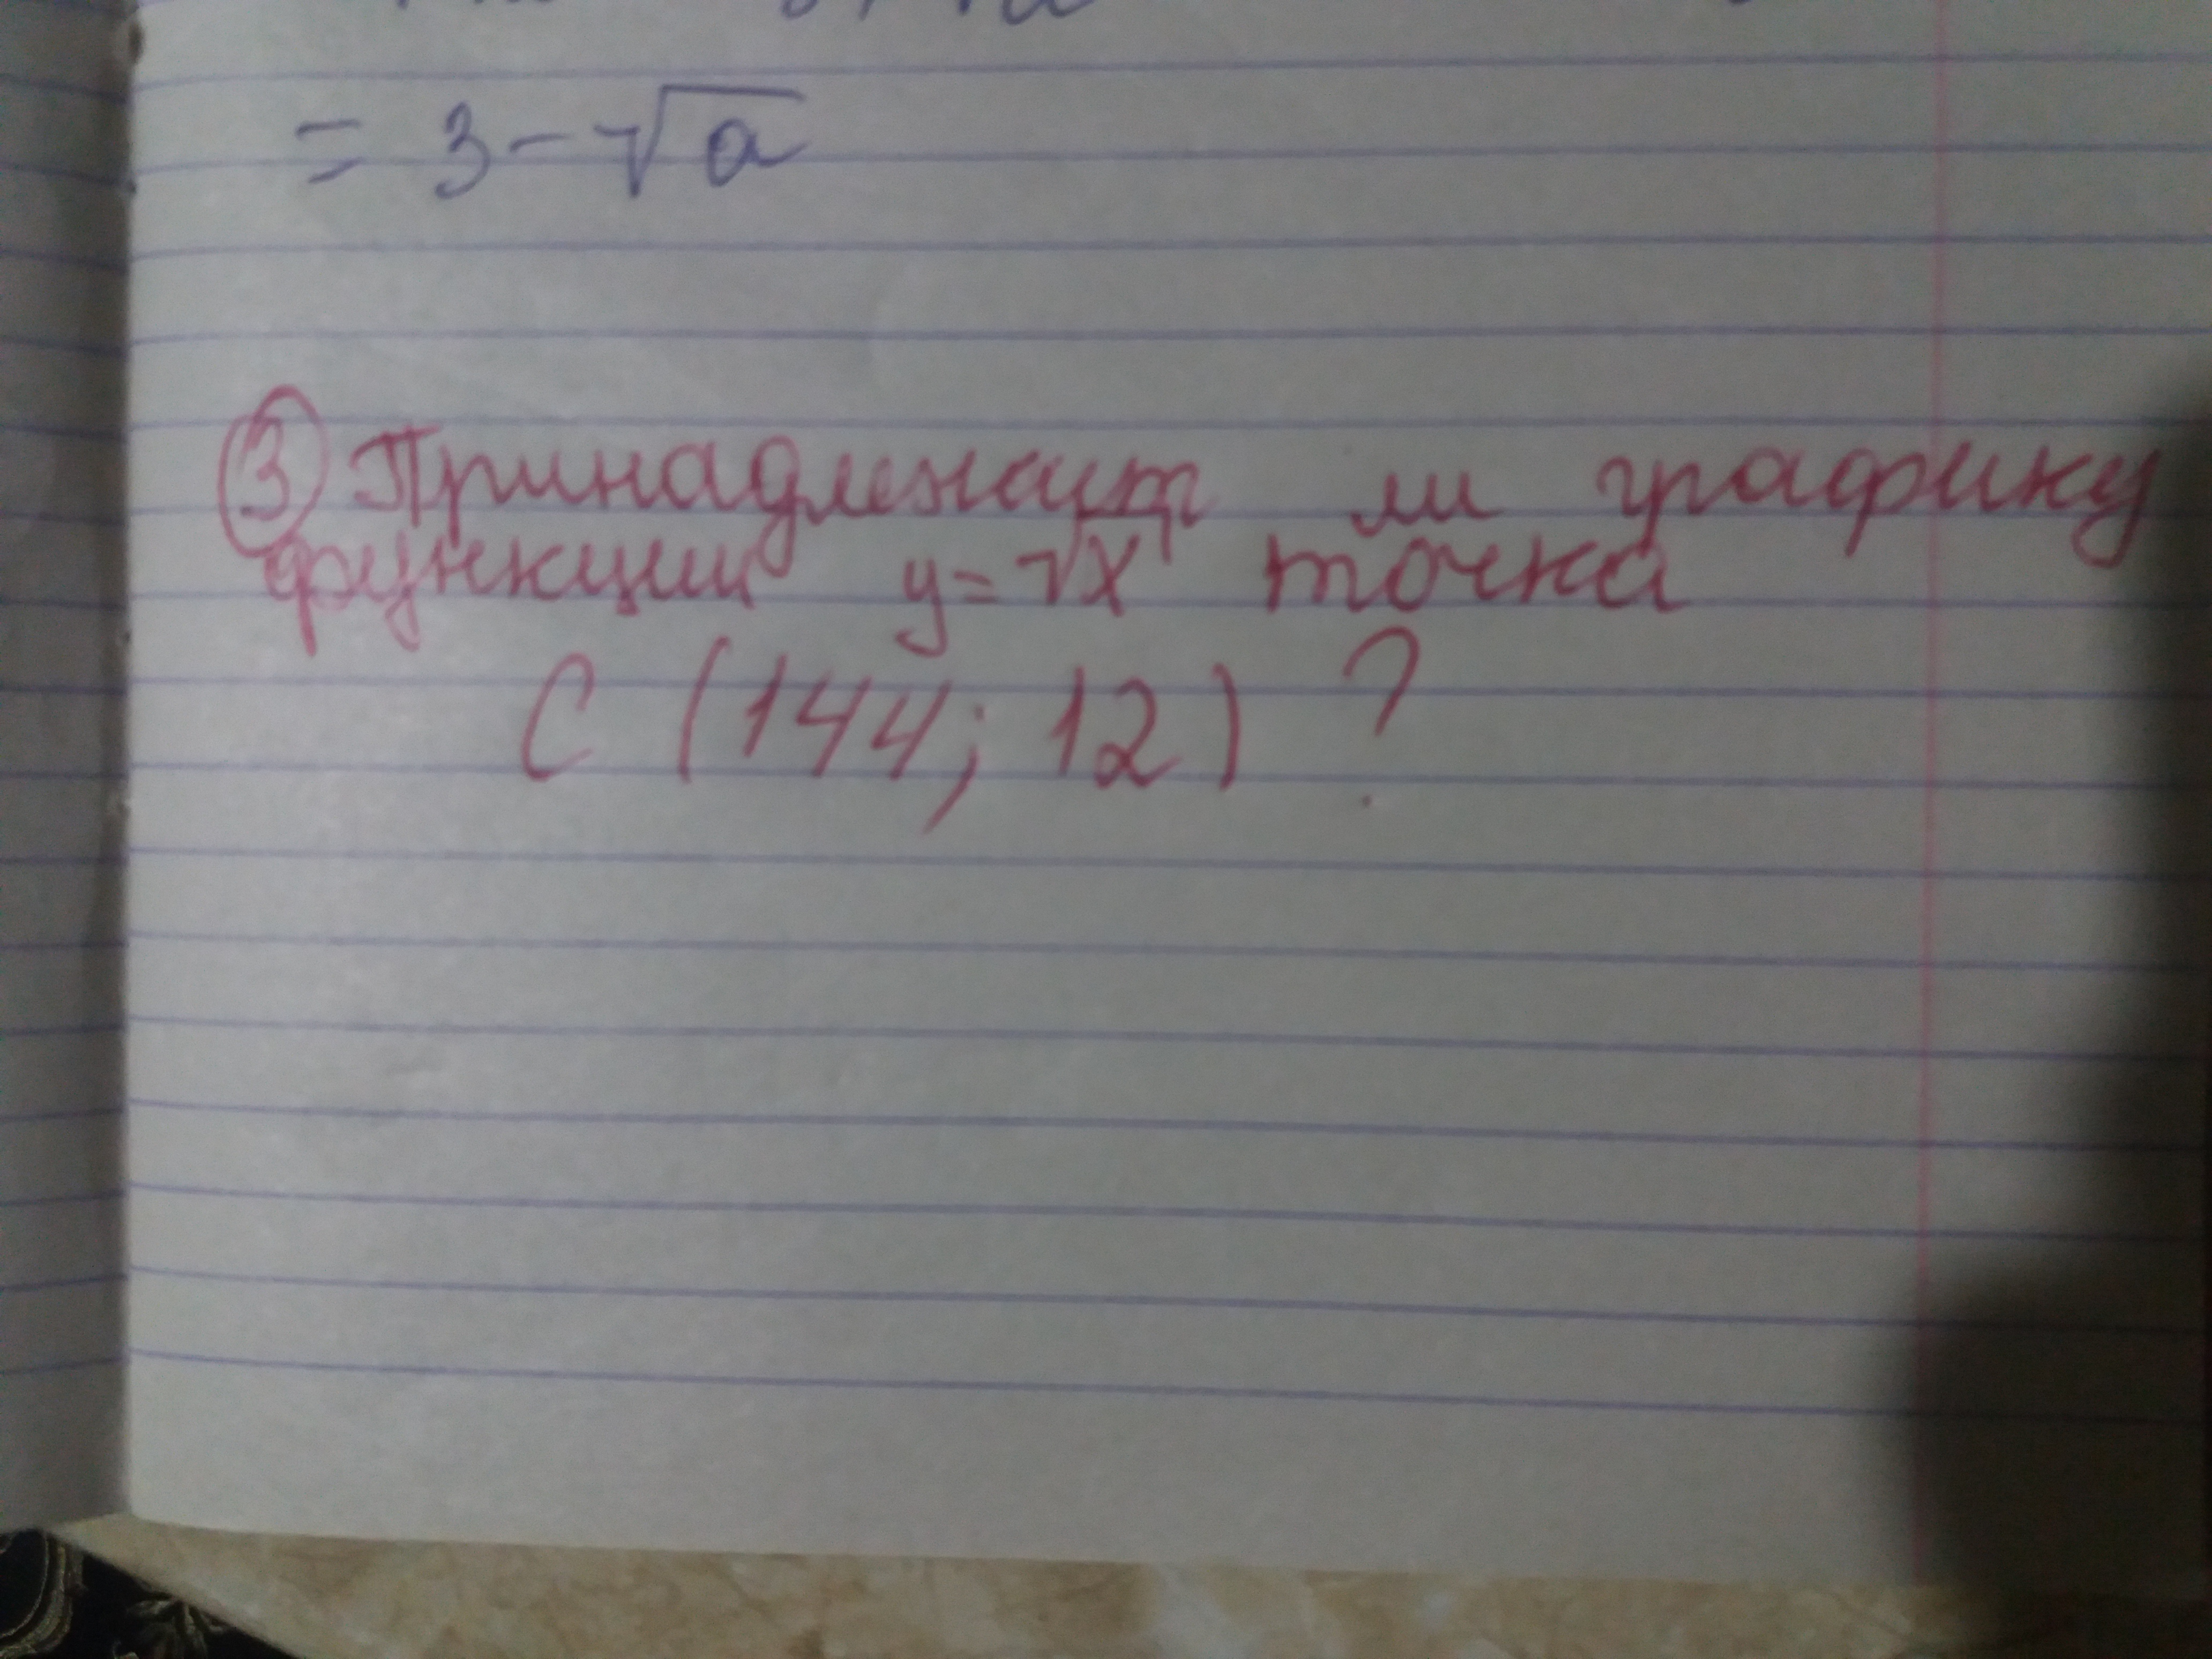 = 3 - √a
③ Принадлежит ли графику
функции y = √x точка
C (144; 12) ?